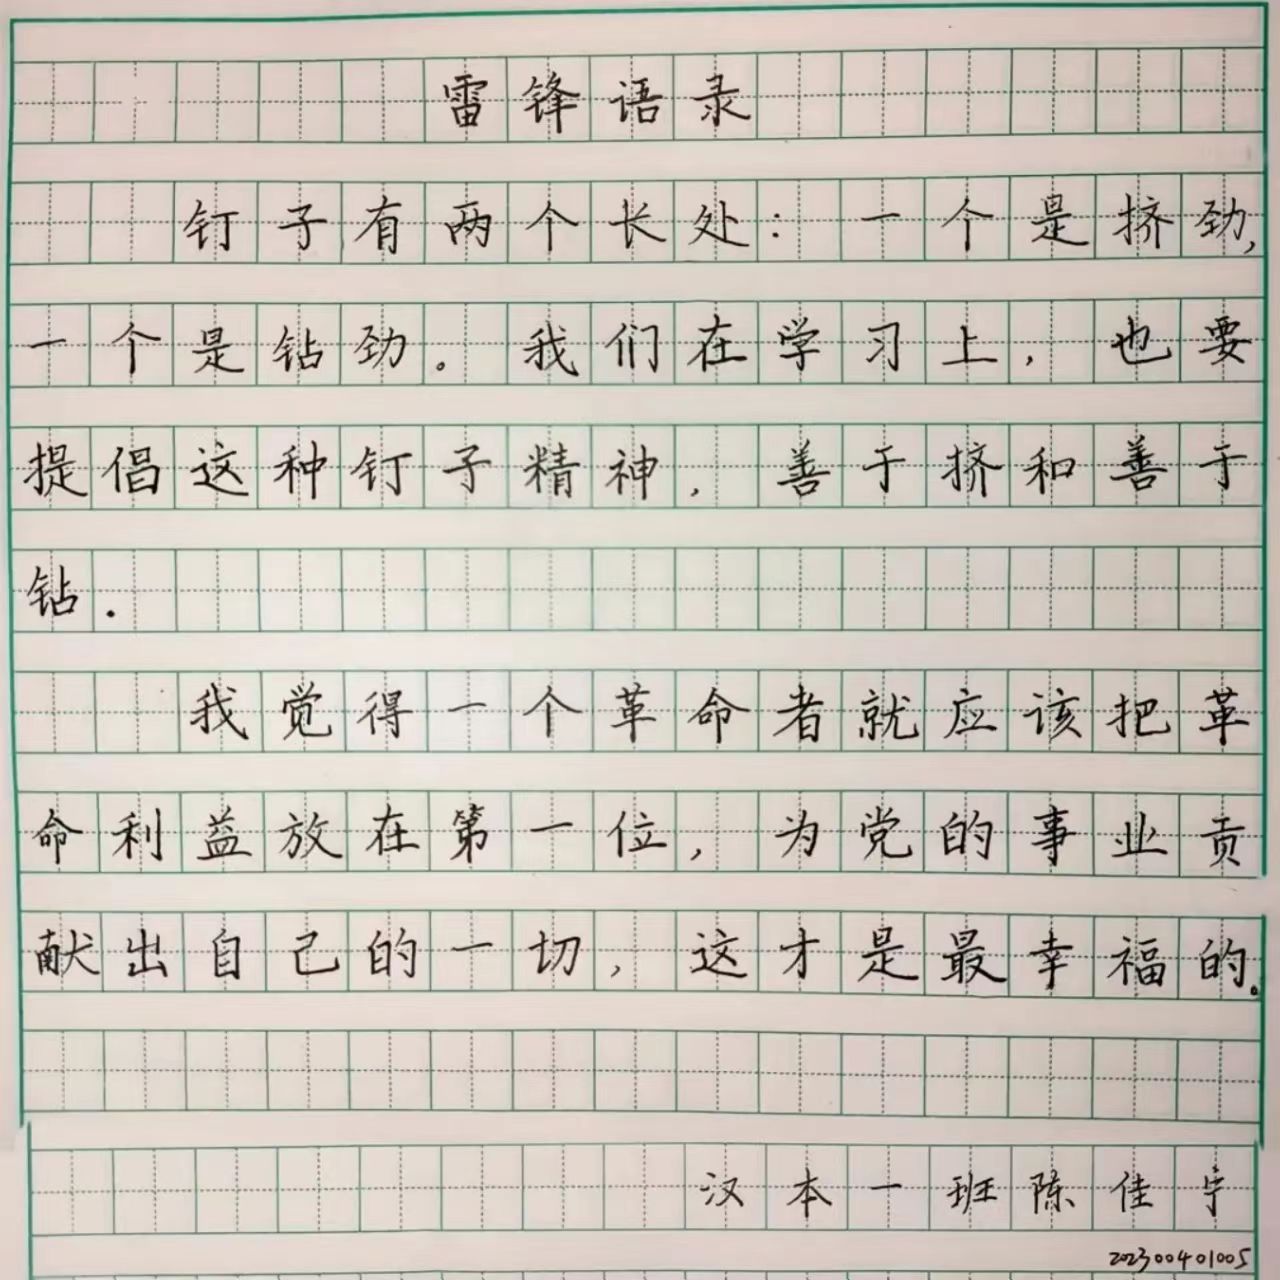 雷锋语录
钉子有两个长处:一个是挤劲,
一个是钻劲。我们在学习上,也要
提倡这种钉子精神,善于挤和善于
钻.
我觉得一个革命者就应该把革
命利益放在第一位,为党的事业贡
献出自己的一切,这才是最幸福的。
汉本一班陈佳宇
202300401005